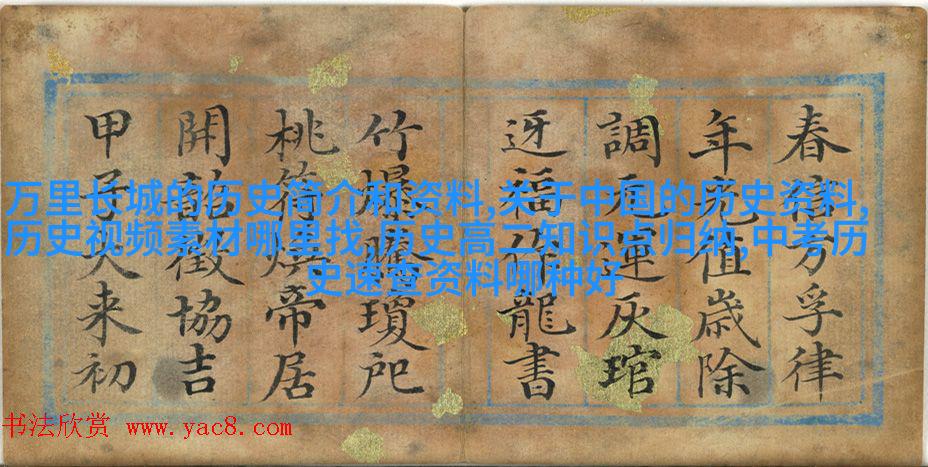 万里长城的历史简介和资料,关于中国的历史资料,
历史视频素材哪里找,历史高二知识点归纳,中考历
史速查资料哪种好
春信方孚律
年光值歲除
調元運灰琯
迓福作龍書
竹爆騰瓊
桃符煥帝居
開韶徵協吉
甲子来初
书法欣赏 www.yac8.com